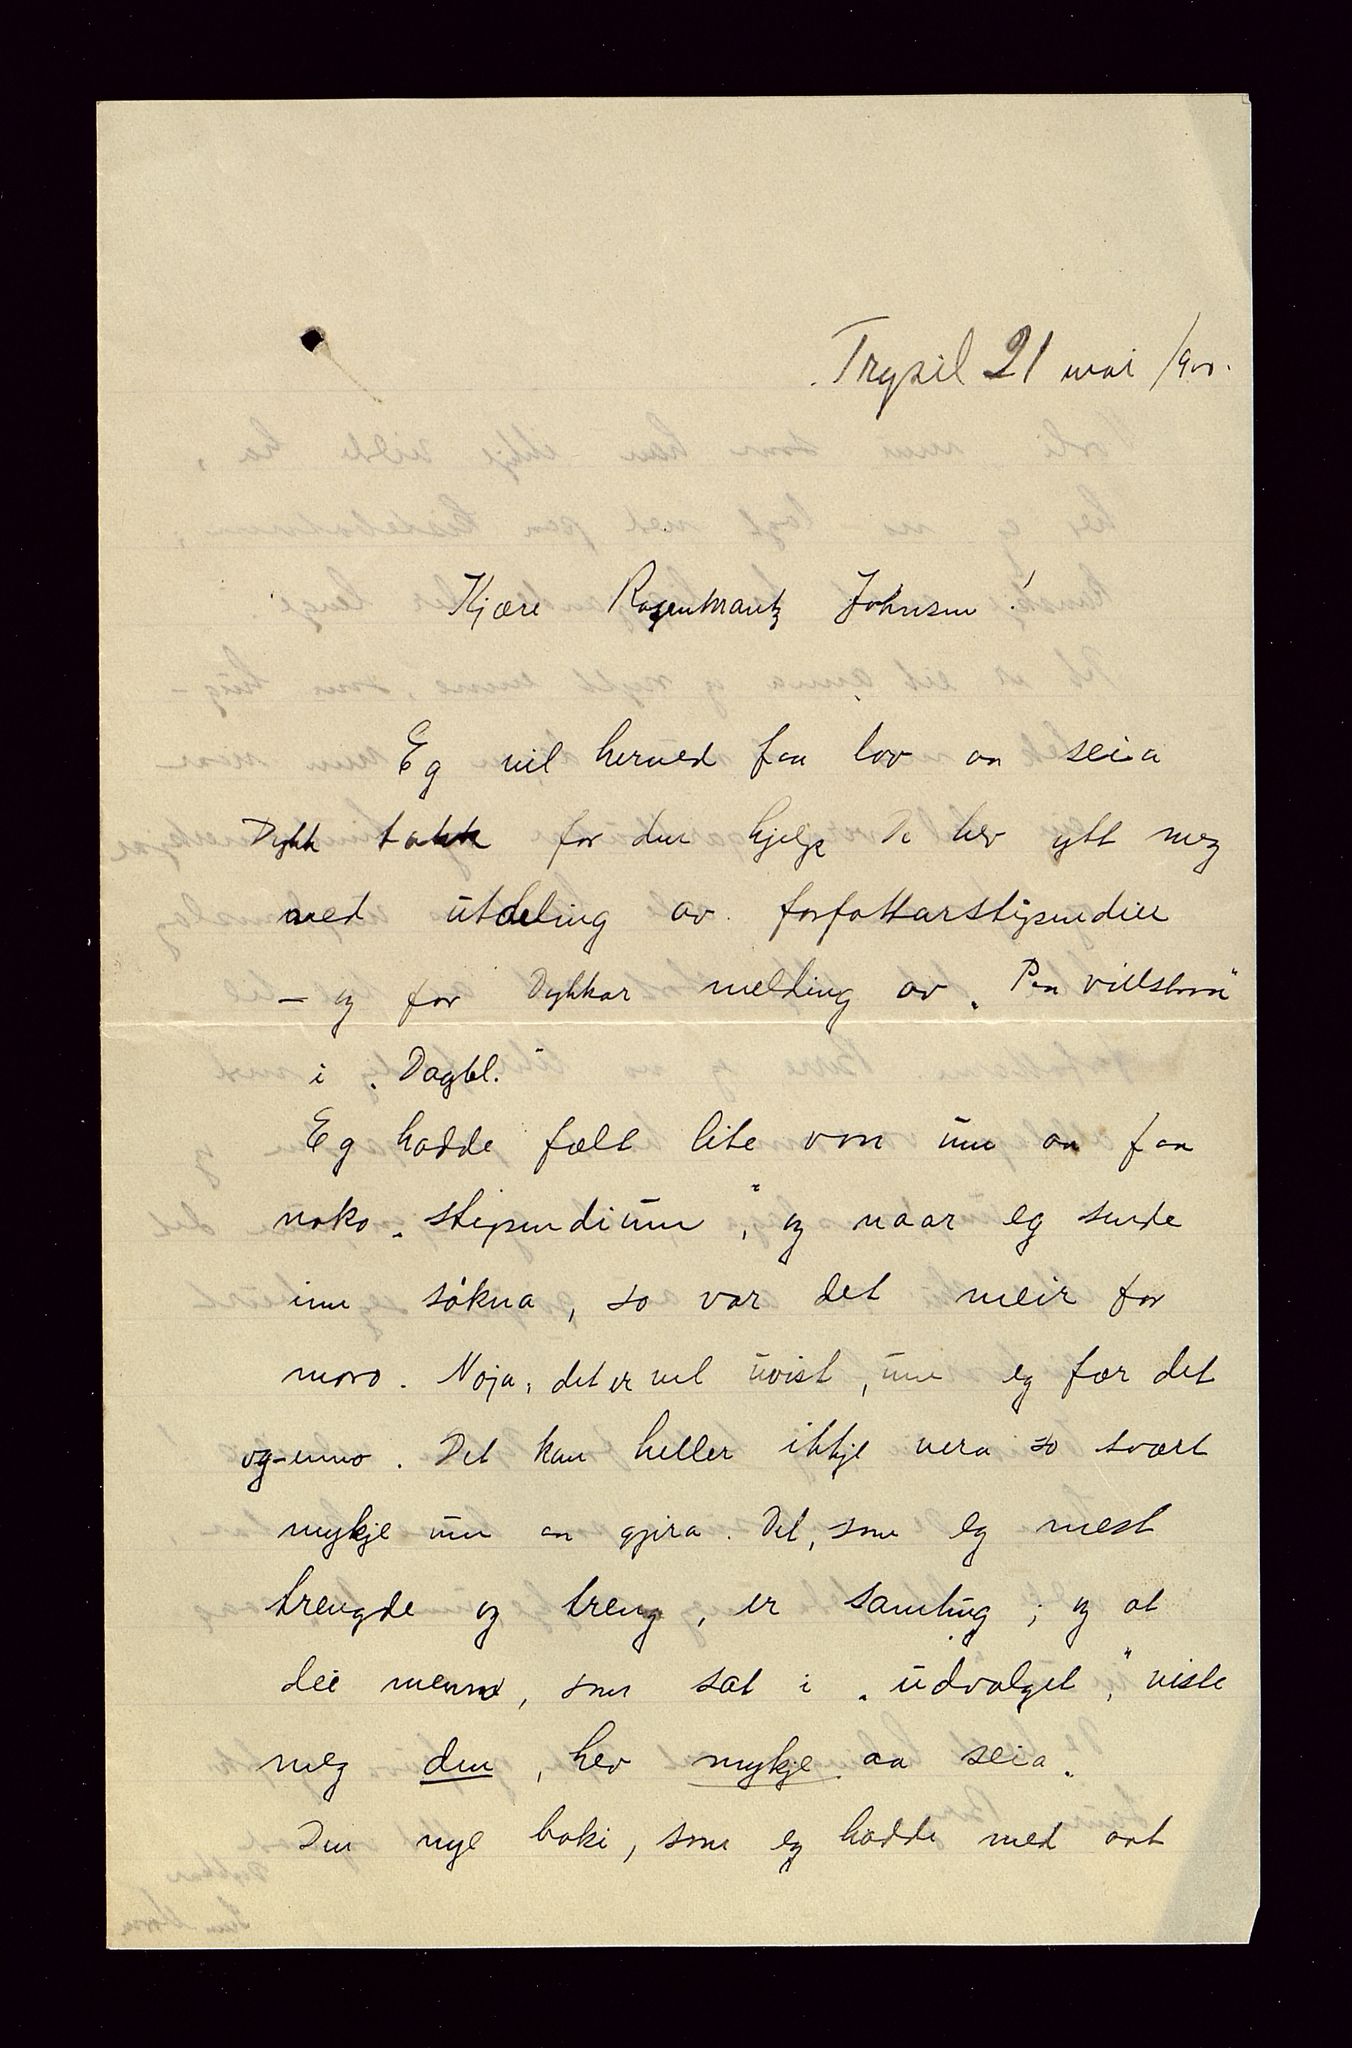 Trysil 21 mai /900.
Kjære Rosenkrantz Johnsen!
Eg vil hermed faa lov aa seia
Dykk takk for den hjelp De hev ytt meg
med utdeling av forfattarstipendiet
- og for Dykkar melding av „Paa villstraa"
i „Dagbl."
Eg hadde fælt lite von um aa faa
noko „stipendium", og naar eg sende
inn søkna, so var det meir for
moro. Noja, det er vel uvist, um eg fær det
og-enno. Det kan heller ikkje vera so svært
mykje um aa gjera. Det, som eg mest
trengde og treng, er samhug; og at
dei menne, som sat i „udvalget", viste
meg den, hev mykje aa seia.
Den nye boki, som eg hadde med aat